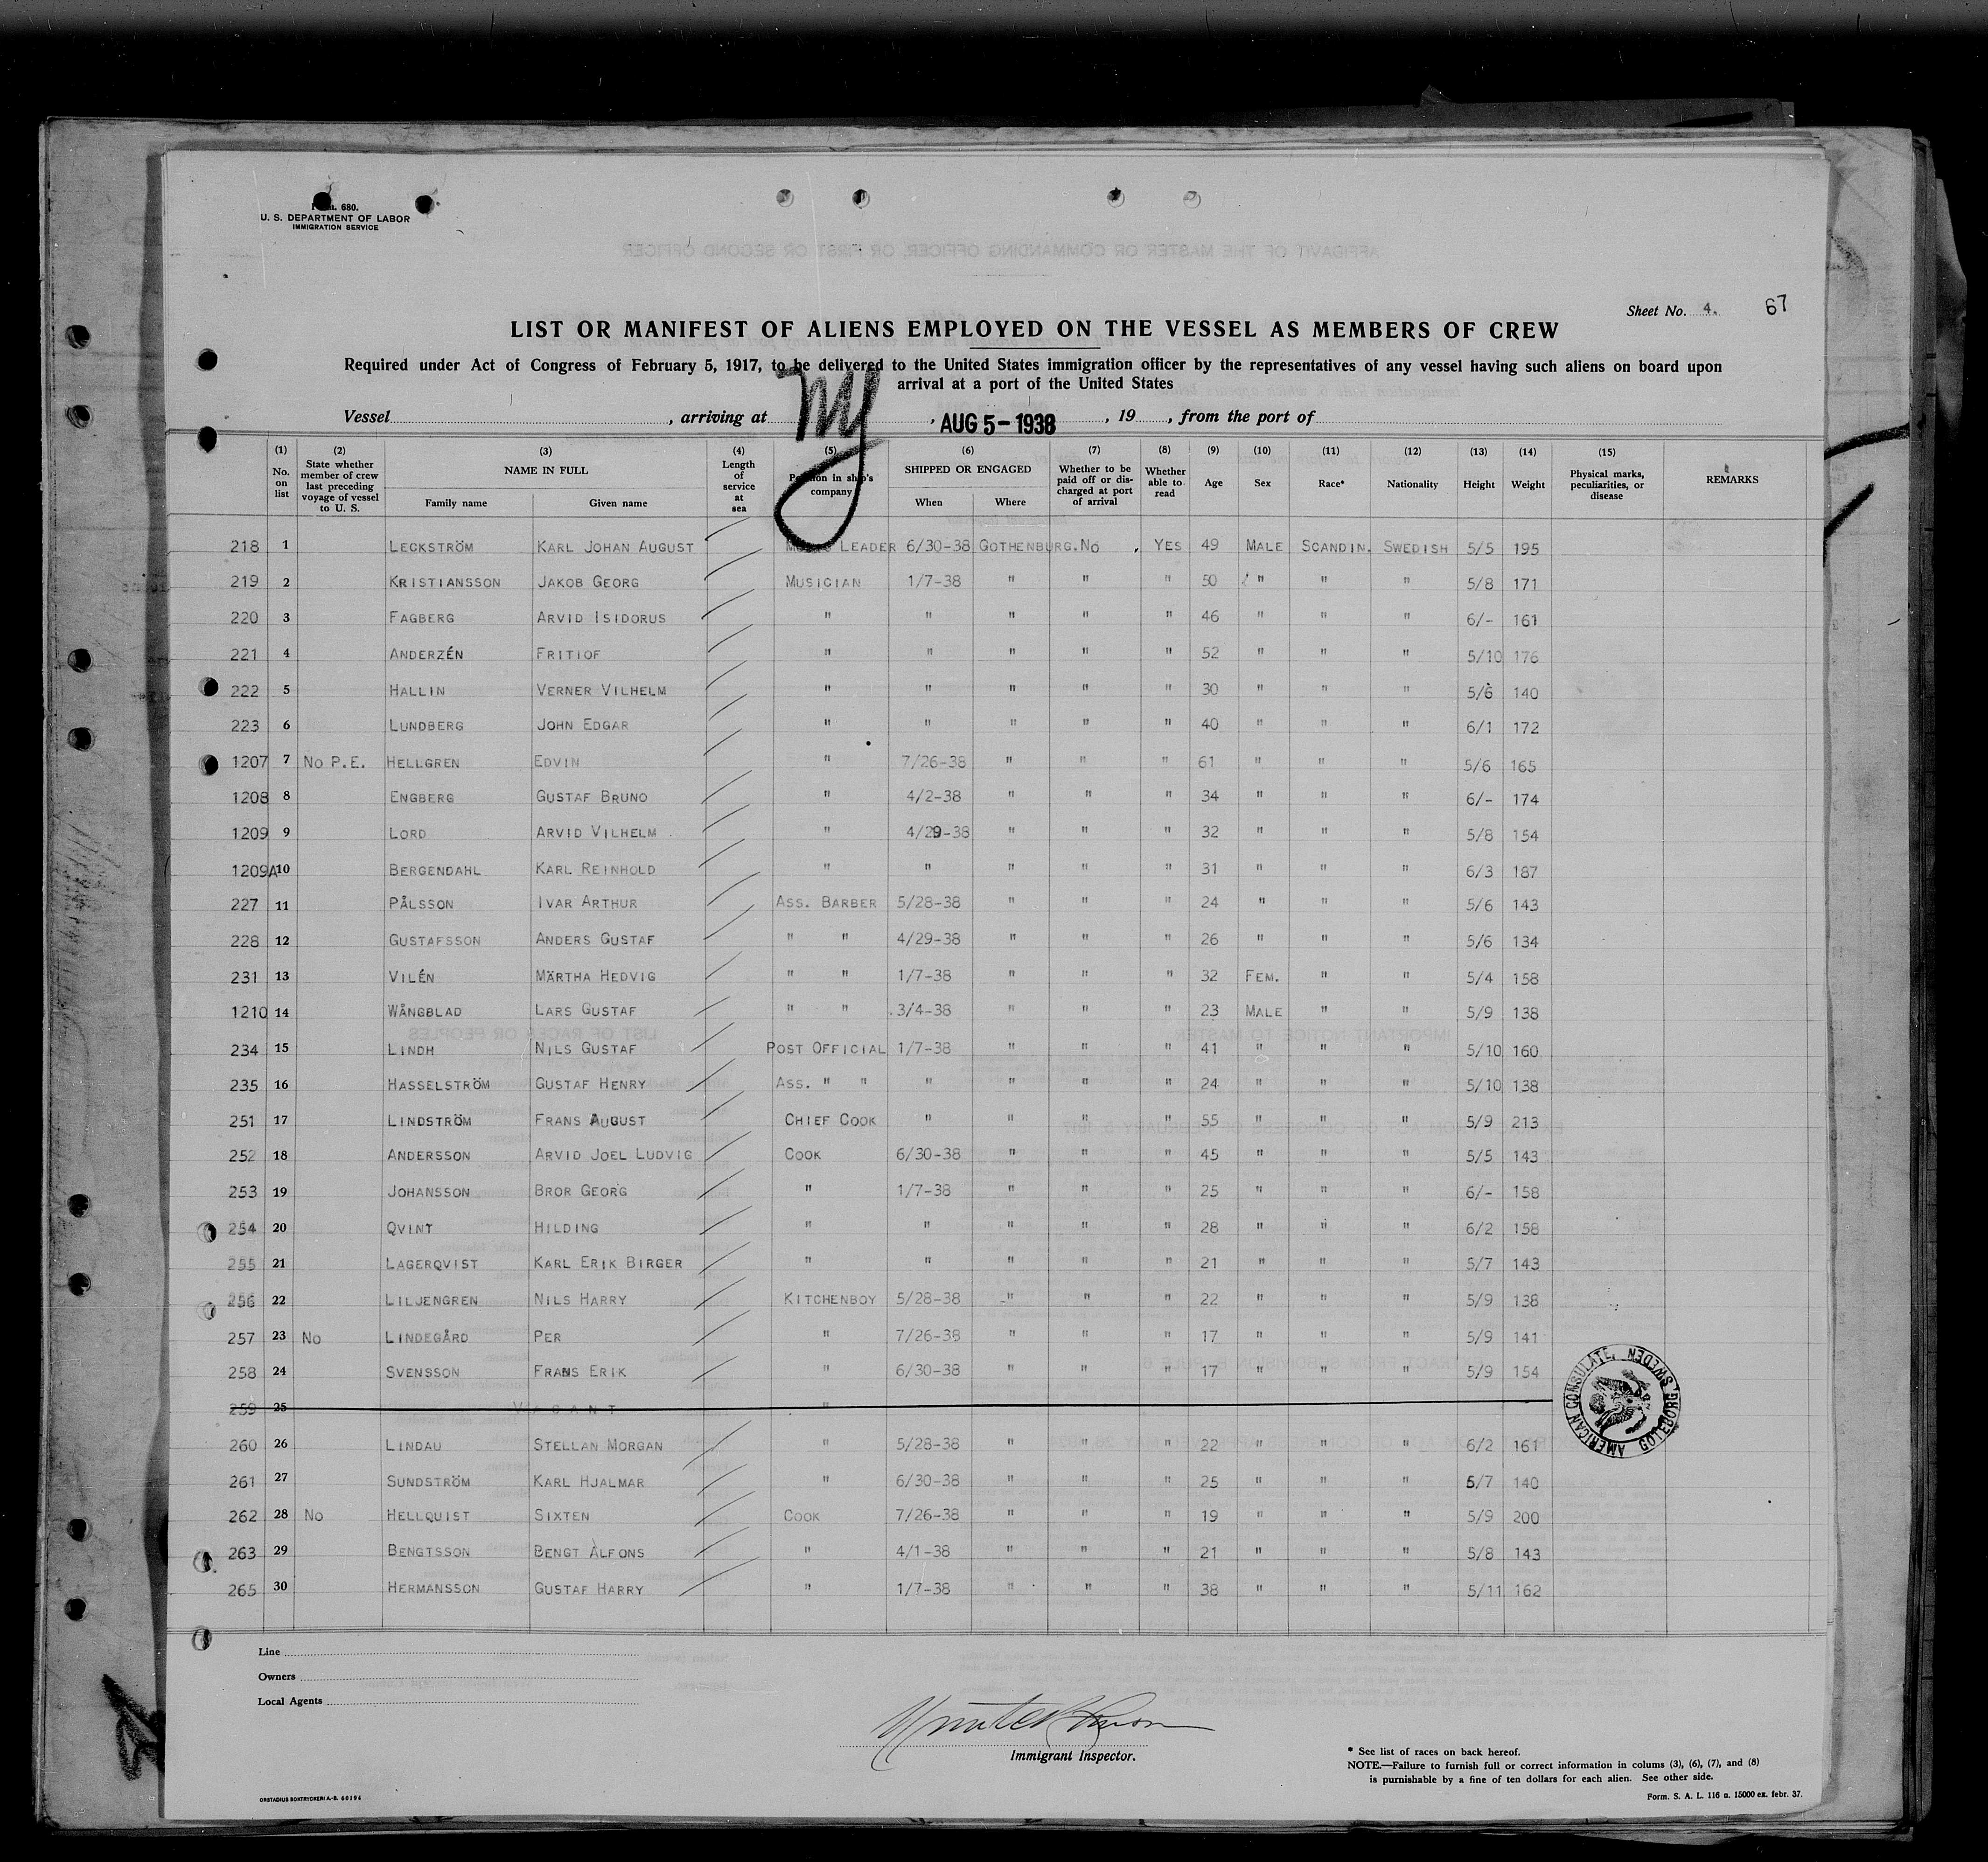 Form. 680.
U. S. DEPARTMENT OF LABOR
IMMIGRATION SERVICE
Sheet No. 4. 67
LIST OR MANIFEST OF ALIENS EMPLOYED ON THE VESSEL AS MEMBERS OF CREW
Required under Act of Congress of February 5, 1917, to be delivered to the United States immigration officer by the representatives of any vessel having such aliens on board upon
arrival at a port of the United States
Vessel , arriving at NY , AUG 5-1938 , 19 , from the port of
(1) No. on list (2) State whether member of crew last preceding voyage of vessel to U. S. (3) NAME IN FULL Family name Given name (4) Length of service at sea (5) Position in ship's company (6) SHIPPED OR ENGAGED When Where (7) Whether to be paid off or discharged at port of arrival (8) Whether able to read (9) Age (10) Sex (11) Race* (12) Nationality (13) Height (14) Weight (15) Physical marks, peculiarities, or disease REMARKS
218 1 LECKSTRÖM KARL JOHAN AUGUST MUSIC LEADER 6/30-38 GOTHENBURG. NO . YES 49 MALE SCANDIN. SWEDISH 5/5 195
219 2 KRISTIANSSON JAKOB GEORG MUSICIAN 1/7-38 " " " 50 " " " 5/8 171
220 3 FAGBERG ARVID ISIDORUS " " " " " 46 " " " 6/- 161
221 4 ANDERZÉN FRITIOF " " " " " 52 " " " 5/10 176
222 5 HALLIN VERNER VILHELM " " " " " 30 " " " 5/6 140
223 6 LUNDBERG JOHN EDGAR " " " " " 40 " " " 6/1 172
1207 7 NO P.E. HELLGREN EDVIN " 7/26-38 " " " 61 " " " 5/6 165
1208 8 ENGBERG GUSTAF BRUNO " 4/2-38 " " " 34 " " " 6/- 174
1209 9 LORD ARVID VILHELM " 4/29-38 " " " 32 " " " 5/8 154
1209A 10 BERGENDAHL KARL REINHOLD " " " " " 31 " " " 6/3 187
227 11 PÅLSSON IVAR ARTHUR ASS. BARBER 5/28-38 " " " 24 " " " 5/6 143
228 12 GUSTAFSSON ANDERS GUSTAF " " 4/29-38 " " " 26 " " " 5/6 134
231 13 VILÉN MÄRTHA HEDVIG " " 1/7-38 " " " 32 FEM. " " 5/4 158
1210 14 WÅNGBLAD LARS GUSTAF " " 3/4-38 " " " 23 MALE " " 5/9 138
234 15 LINDH NILS GUSTAF POST OFFICIAL 1/7-38 " " " 41 " " " 5/10 160
235 16 HASSELSTRÖM GUSTAF HENRY ASS. " " " " " " 24 " " " 5/10 138
251 17 LINDSTRÖM FRANS AUGUST CHIEF COOK " " " " 55 " " " 5/9 213
252 18 ANDERSSON ARVID JOEL LUDVIG COOK 6/30-38 " " " 45 " " " 5/5 143
253 19 JOHANSSON BROR GEORG " 1/7-38 " " " 25 " " " 6/- 158
254 20 QVINT HILDING " " " " " 28 " " " 6/2 158
255 21 LAGERQVIST KARL ERIK BIRGER " " " " " 21 " " " 5/7 143
256 22 LILJENGREN NILS HARRY KITCHENBOY 5/28-38 " " " 22 " " " 5/9 138
257 23 NO LINDEGÅRD PER " 7/26-38 " " " 17 " " " 5/9 141
258 24 SVENSSON FRANS ERIK " 6/30-38 " " " 17 " " " 5/9 154
259 25 VACANT "
260 26 LINDAU STELLAN MORGAN " 5/28-38 " " " 22 " " " 6/2 161
261 27 SUNDSTRÖM KARL HJALMAR " 6/30-38 " " " 25 " " " 5/7 140
262 28 NO HELLQUIST SIXTEN COOK 7/26-38 " " " 19 " " " 5/9 200
263 29 BENGTSSON BENGT ALFONS " 4/1-38 " " " 21 " " " 5/8 143
265 30 HERMANSSON GUSTAF HARRY " 1/7-38 " " " 38 " " " 5/11 162
AMERICAN CONSULATE, GOTEBORG, SWEDEN
Line
Owners
Local Agents
Immigrant Inspector.
* See list of races on back hereof.
NOTE.—Failure to furnish full or correct information in colums (3), (6), (7), and (8)
is punishable by a fine of ten dollars for each alien. See other side.
ORSTADIUS BOKTRYCKERI A.-B. 60194
Form. S. A. L. 116 a. 15000 ex. febr. 37.